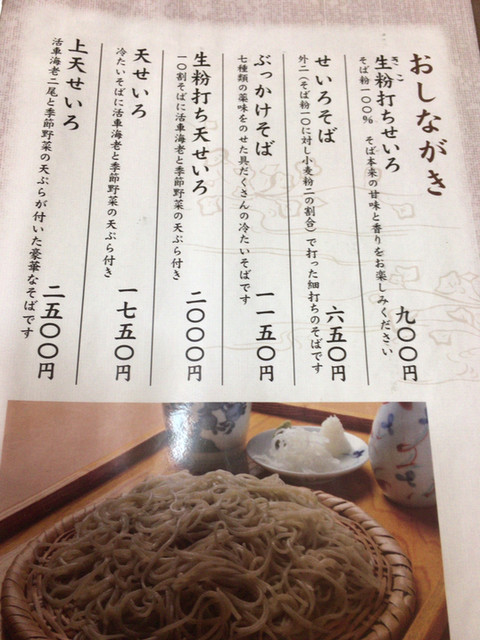 おしながき
きこ
生粉打ちせいろ
そば粉一〇〇% そば本来の甘味と香りをお楽しみください
九〇〇円
せいろそば
外二(そば粉一〇に対し小麦粉二の割合)で打った細打ちのそばです
六五〇円
ぶっかけそば
七種類の薬味をのせた具だくさんの冷たいそばです
一一五〇円
生粉打ち天せいろ
一〇割そばに活車海老と季節野菜の天ぷら付き
二〇〇〇円
天せいろ
冷たいそばに活車海老と季節野菜の天ぷら付き
一七五〇円
上天せいろ
活車海老二尾と季節野菜の天ぷらが付いた豪華なそばです
二五〇〇円